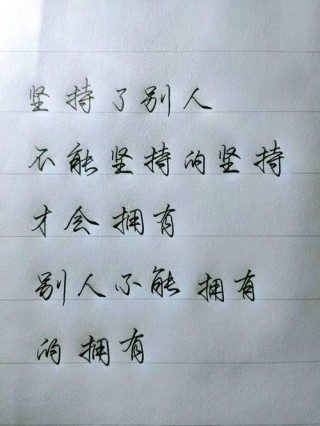 坚持了别人
不能坚持的坚持
才会拥有
别人不能拥有
的拥有